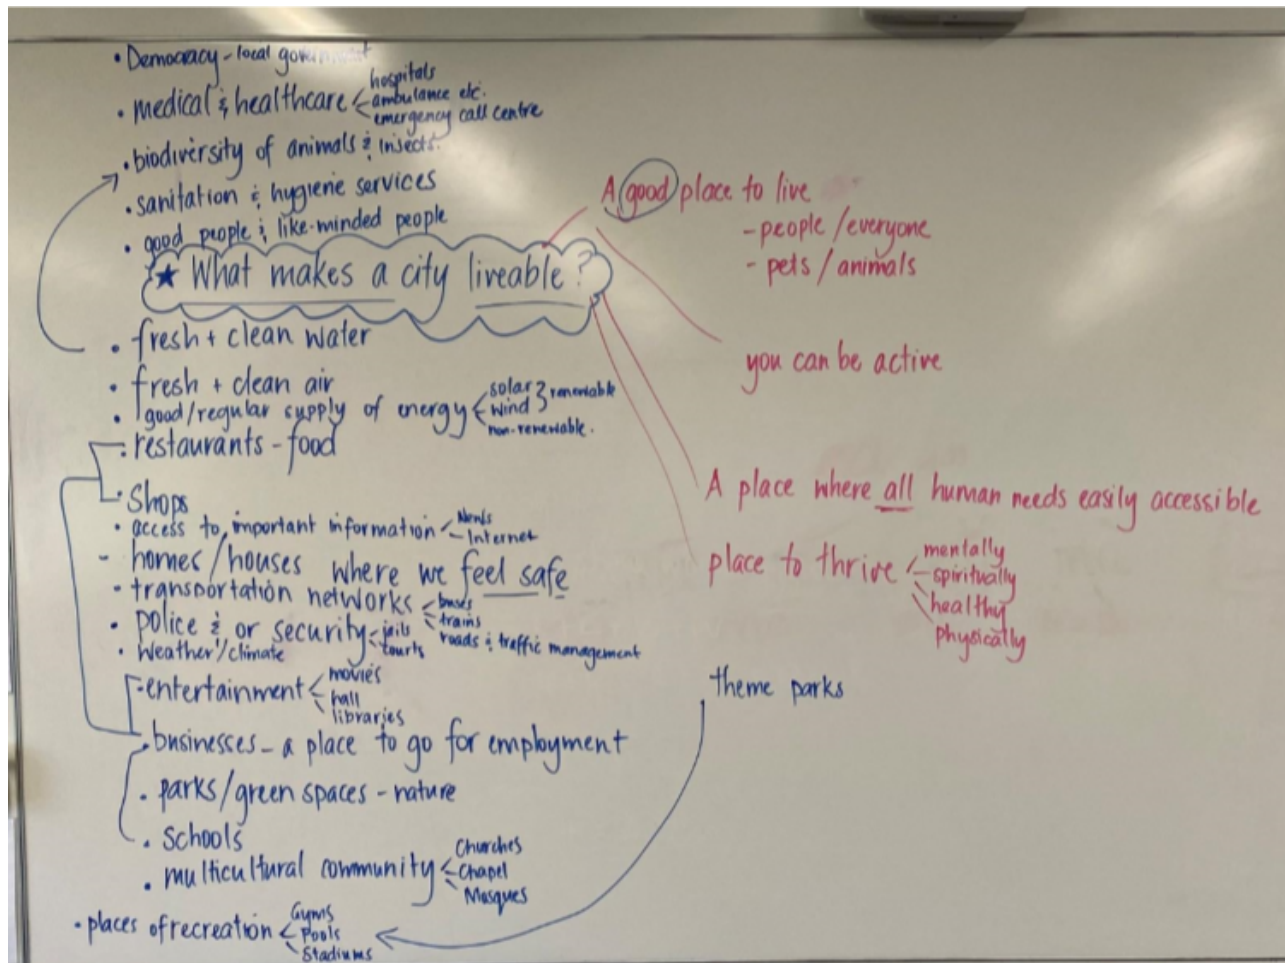 • Democracy - local government
• medical & healthcare
hospitals
ambulance etc.
emergency call centre
• biodiversity of animals & insects.
• sanitation & hygiene services
• good people & like-minded people
★ What makes a city liveable?
• fresh + clean water
• fresh + clean air
• good/regular supply of energy
solar
wind
renewable
non-renewable.
• restaurants - food
• Shops
• access to important information
News
Internet
- homes/houses where we feel safe
- transportation networks
buses
trains
roads & traffic management
• police & or security
jails
courts
• Weather/climate
• entertainment
movies
hall
libraries
• businesses - a place to go for employment
• parks/green spaces - nature
• Schools
• multicultural community
Churches
Chapel
Mosques
• places of recreation
Gyms
Pools
Stadiums
A good place to live
- people/everyone
- pets/animals
you can be active
A place where all human needs easily accessible
place to thrive
mentally
spiritually
healthy
physically
theme parks